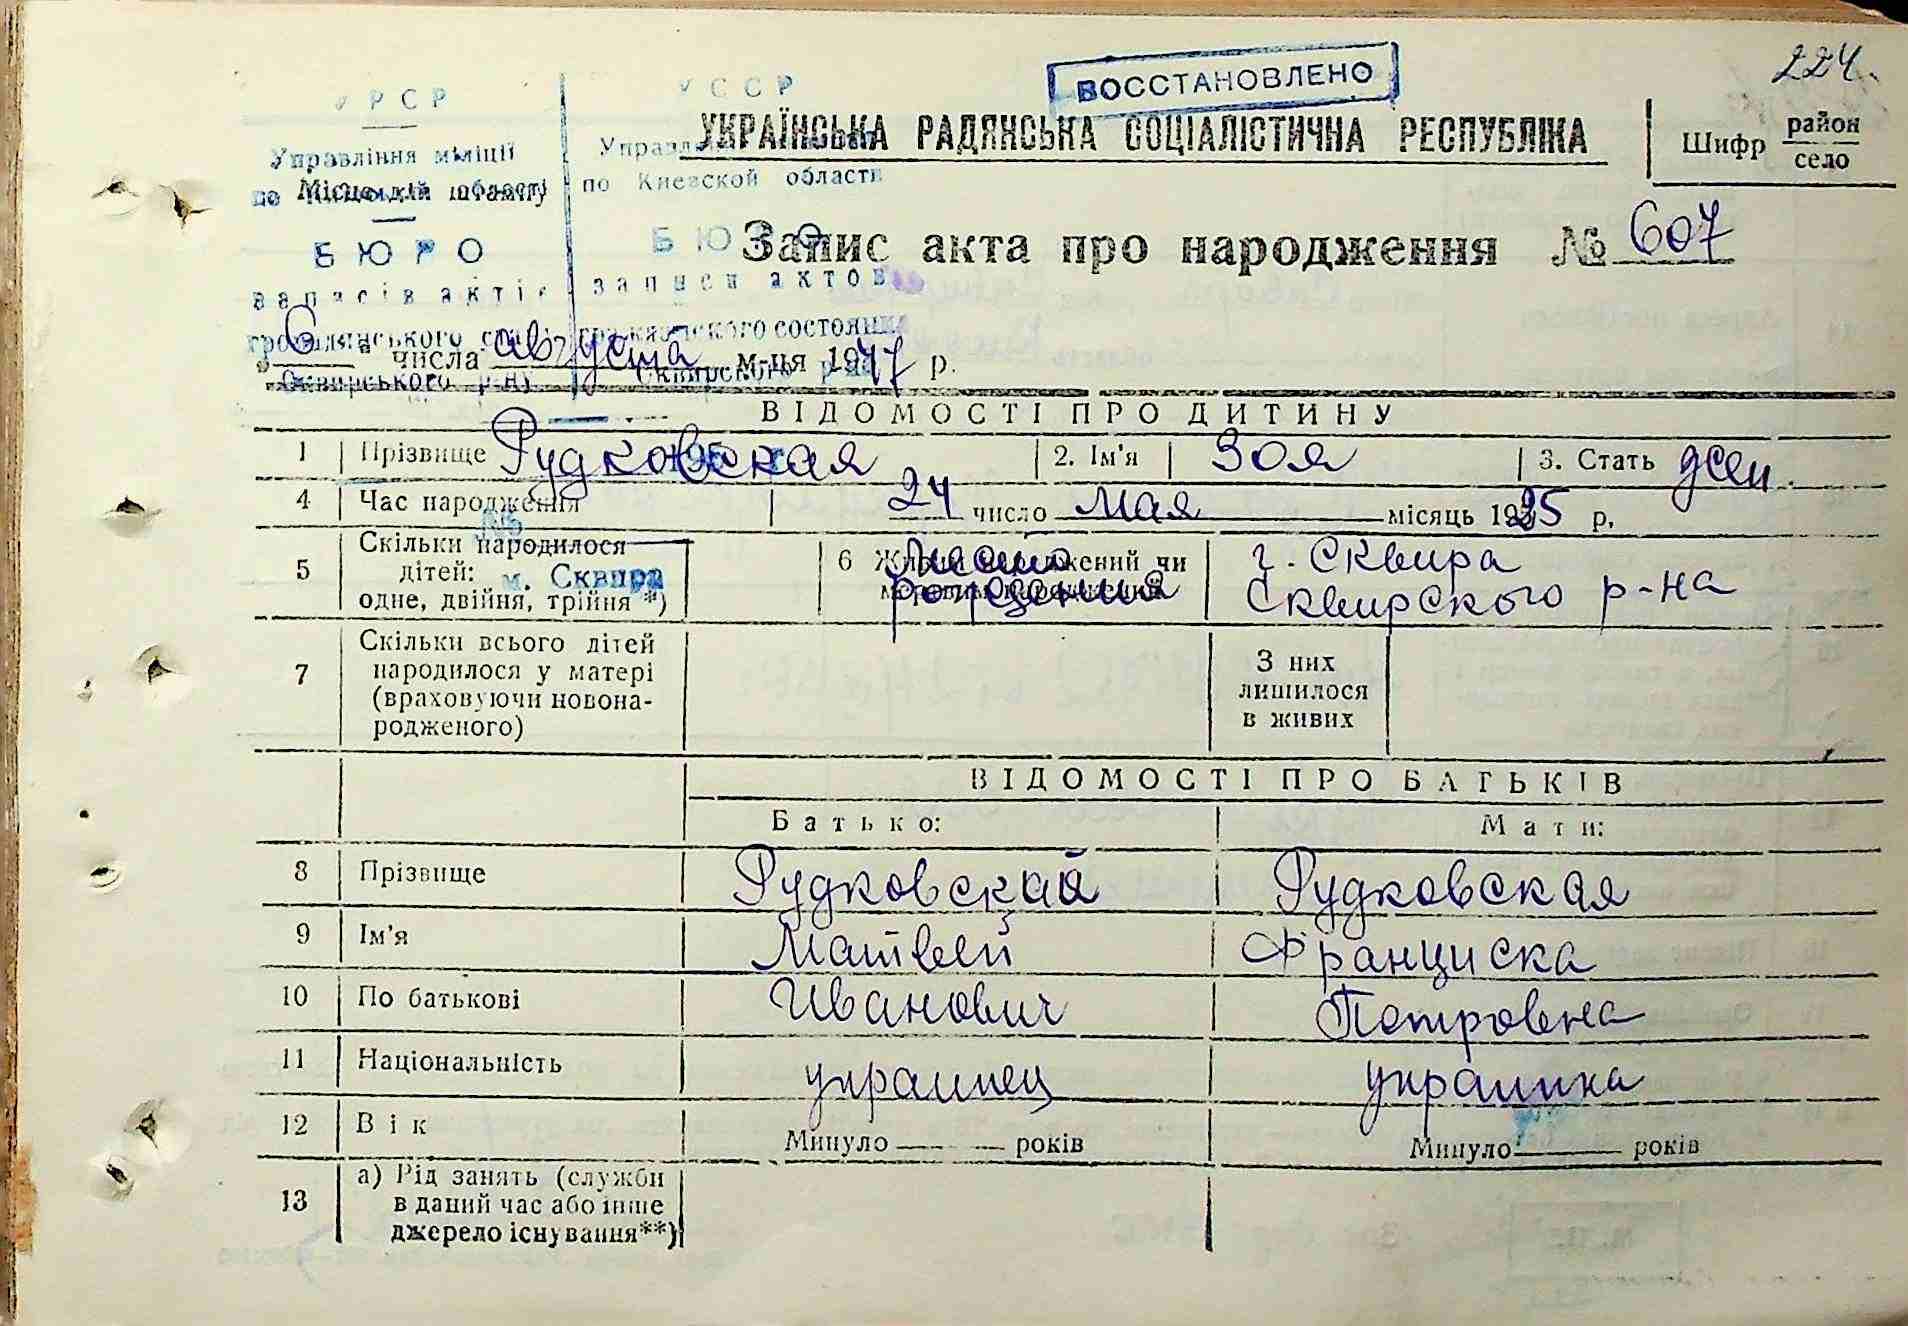 224.
ВОССТАНОВЛЕНО
УРСР
УССР
УКРАЇНСЬКА РАДЯНСЬКА СОЦІАЛІСТИЧНА РЕСПУБЛІКА
Шифр район
село
Управління міліції
по Киевской области
Місце для штампу
БЮРО
БЮРО
Запис акта про народження № 607
записів актів
записи актов
громадянського
гражданского состояния
„6“ числа августа м-ця 1947 р.
Сквирського р-ну
Сквирского
ВІДОМОСТІ ПРО ДИТИНУ
1 Прізвище Рудковская 2. Ім'я Зоя 3. Стать жен.
4 Час народження 24 число мая місяць 1925 р.
№
5 Скільки народилося
дітей:
одне, двійня, трійня *)
м. Сквира
6 Живим народжений чи
место
рождения
г. Сквира
Сквирского р-на
7 Скільки всього дітей
народилося у матері
(враховуючи новона-
родженого)
З них
лишилося
в живих
ВІДОМОСТІ ПРО БАТЬКІВ
Батько: Мати:
8 Прізвище Рудковский Рудковская
9 Ім'я Матвей Франциска
10 По батькові Иванович Петровна
11 Національність украинец украинка
12 Вік Минуло років Минуло років
13 а) Рід занять (служби
в даний час або інше
джерело існування**)